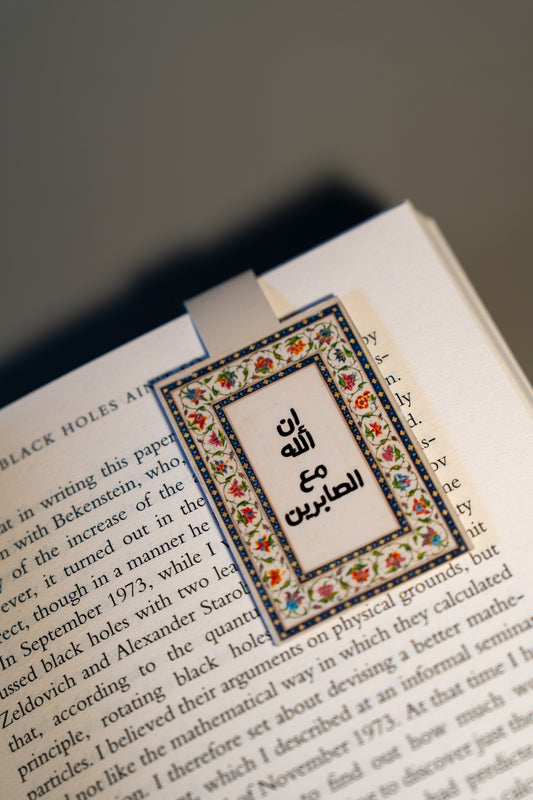 BLACK HOLES AIN
at in writing this paper
n with Bekenstein, who,
y of the increase of the
ever, it turned out in the
rect, though in a manner he
In September 1973, while I
ussed black holes with two lea
Zeldovich and Alexander Starob
that, according to the quantu
principle, rotating black holes
particles. I believed their arguments on physical grounds, but
not like the mathematical way in which they calculated
on. I therefore set about devising a better mathe-
nt, which I described at an informal seminar
of November 1973. At that time I h
to find out how much
to discover just the
had predicte
by
s-
n.
ly
d.
s-
ne
ty
nit
إن
الله
مع
الصابرين